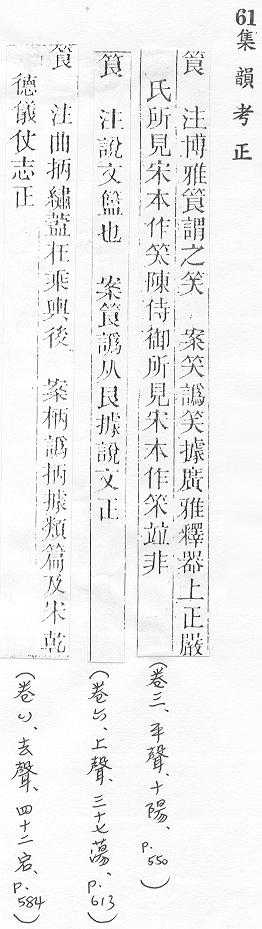 61
集韻考正
筤 注博雅筤謂之笑 案笑譌笑據廣雅釋器上正嚴
氏所見宋本作笑陳侍御所見宋本作笨竝非
(卷三、平聲、十陽、p.550)
筤 注說文籃也 案筤譌从艮據說文正
(卷六、上聲、三十七蕩、p.613)
筤 注曲柄繡蓋在乘輿後 案柄譌抦據類篇及宋乾
德儀仗志正
(卷八、去聲、四十二宕、p.584)